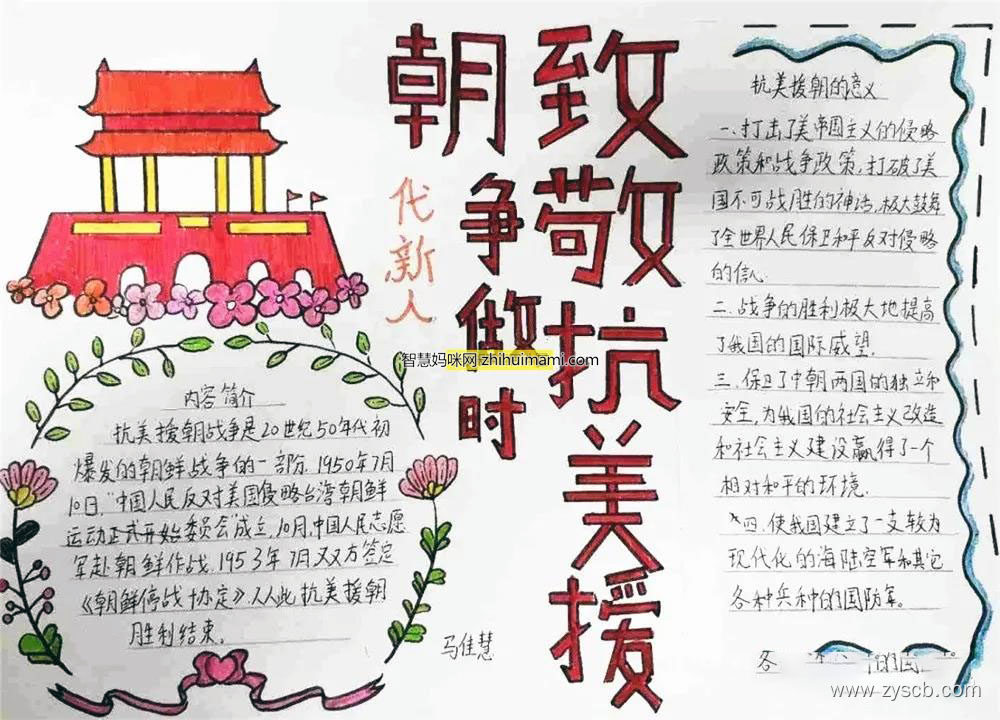 致敬抗美援
朝
争做时
代新人
内容简介
抗美援朝战争是20世纪50年代初
爆发的朝鲜战争的一部分.1950年7月
10日,"中国人民反对美国侵略台湾朝鲜
运动正式开始委员会"成立,10月,中国人民志愿
军赴朝鲜作战.1953年7月又双方签定
《朝鲜停战协定》.从此抗美援朝
胜利结束。
马佳慧
抗美援朝的意义
一、打击了美帝国主义的侵略
政策和战争政策,打破了美
国不可战胜的神话,极大鼓舞
了全世界人民保卫和平反对侵略
的信心.
二.战争的胜利极大地提高
了我国的国际威望.
三.保卫了中朝两国的独立和
安全,为我国的社会主义改造
和社会主义建设赢得了一个
相对和平的环境.
四.使我国建立了一支较为
现代化的海陆空军和其它
各种兵种的国防军。
各
智慧妈咪网 zhihuimami.com
www.zyscb.com